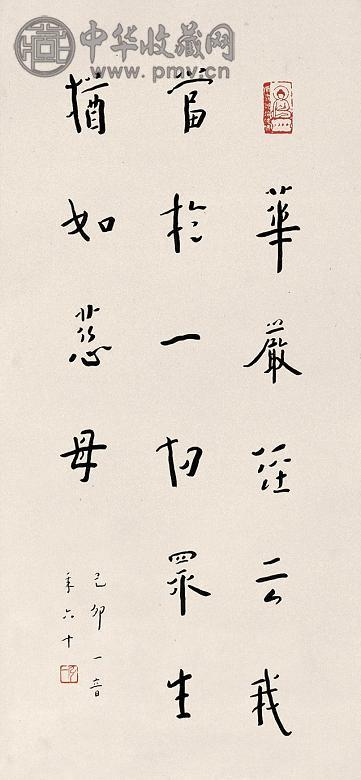 中华收藏网
www.pmv.cn
華嚴經云我
當於一切眾生
猶如慈母
己卯一音
年六十